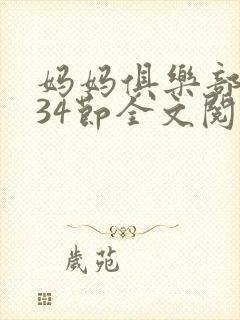 妈妈俱樂部
34節全文閱
歲苑